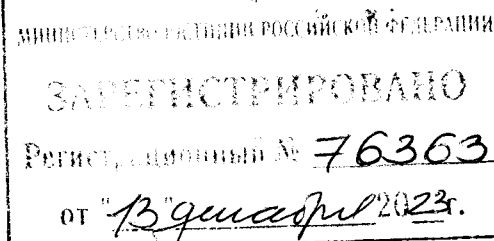 МИНИСТЕРСТВО ЮСТИЦИИ РОССИЙСКОЙ ФЕДЕРАЦИИ
ЗАРЕГИСТРИРОВАНО
Регистрационный № 76363
от "13" декабря 2023г.